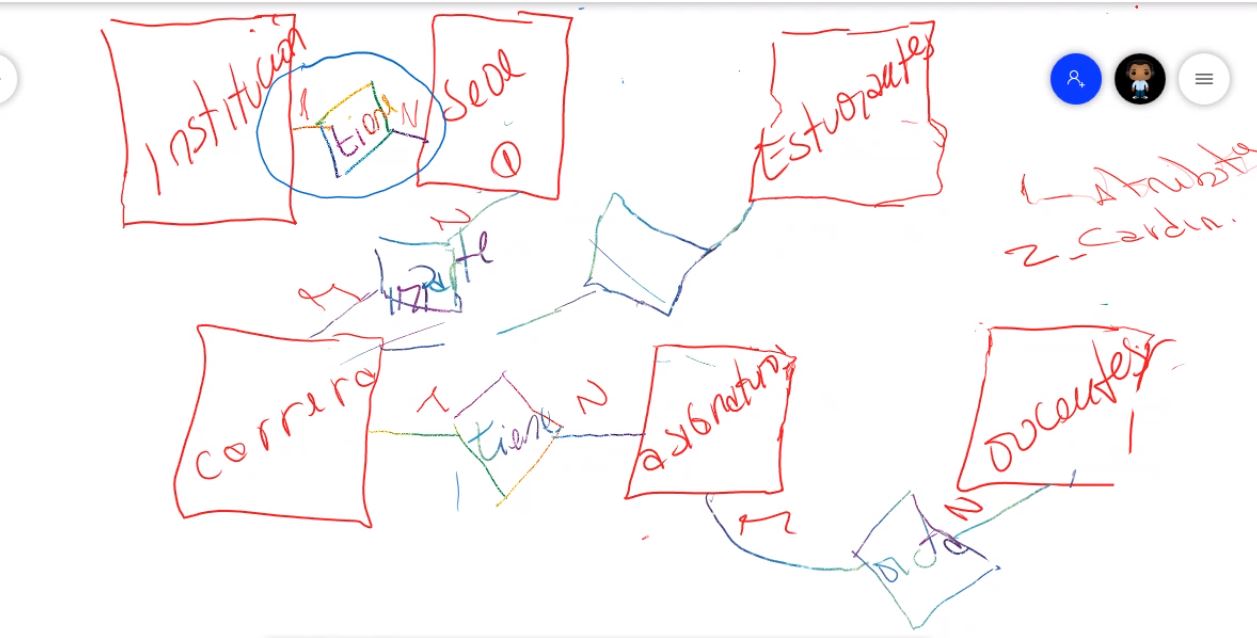 Institución
1
tiene
N
Sede
①
Estudiantes
1_ Atributo
2_ Cardin.
N
Imparte
M
Carrera
1
tiene
N
asignatura
Docentes
M
N
dicta